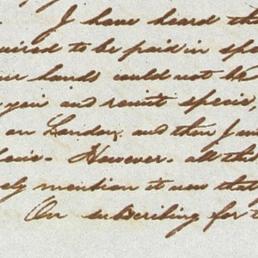 I have heard th
uired to be paid in spe
our hands could not be
you and remit specie,
on London, and then I
However. all th
ely mention it now that
On subscribing for t